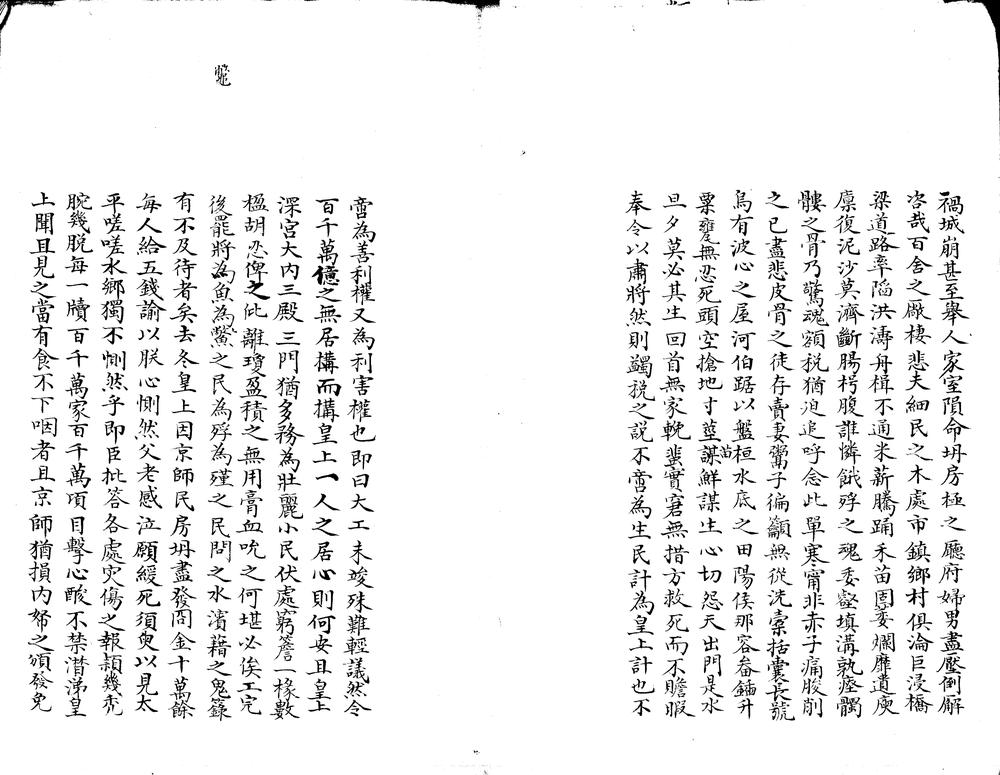 禍城崩甚至舉人家室隕命坍房極之廳府婦男盡壓倒廨
咨哉百舍之廠棲悲夫細民之木處市鎮鄉村俱淪巨浸橋
梁道路率陷洪濤舟楫不通米薪騰踊禾苗園委爛靡遺庾
廩復泥沙莫濟斷腸枵腹誰憐餓殍之魂委壑填溝孰瘞髑
髏之骨乃驚魂額稅猶迫追呼念此單寒甯非赤子痛朘削
之已盡悲皮骨之徒存賣妻鬻子徧籲無從洗橐括囊長號
烏有波心之屋河伯踞以盤桓水底之田陽侯那容畚鍤升
粟甕無忍死頭空搶地寸莖謀鮮謀生心切怨天出門是水
苗
旦夕莫必其生回首無家輓輩實窘無措方救死而不贍暇
奉令以肅將然則蠲稅之說不啻為生民計為皇上計也不
啻為善利權又為利害權也即曰大工未竣殊難輕議然令
百千萬億之無居構而構皇上一人之居心則何安且皇上
深宮大內三殿三門猶多務為壯麗小民伏處窮簷一椽數
楹胡忍俾之仳離瓊盈積之無用膏血吮之何堪必俟工完
後罷將為魚為鱉之民為殍為殣之民問之水濱藉之鬼籙
有不及待者矣去冬皇上因京師民房坍盡發冏金十萬餘
每人給五錢諭以朕心惻然父老感泣願緩死須臾以見太
平嗟嗟水鄉獨不惻然乎即臣批答各處灾傷之報穎幾禿
腕幾脫每一牘百千萬家百千萬項目擊心酸不禁潸涕皇
上聞且見之當有食不下咽者且京師猶損內帑之頒發免